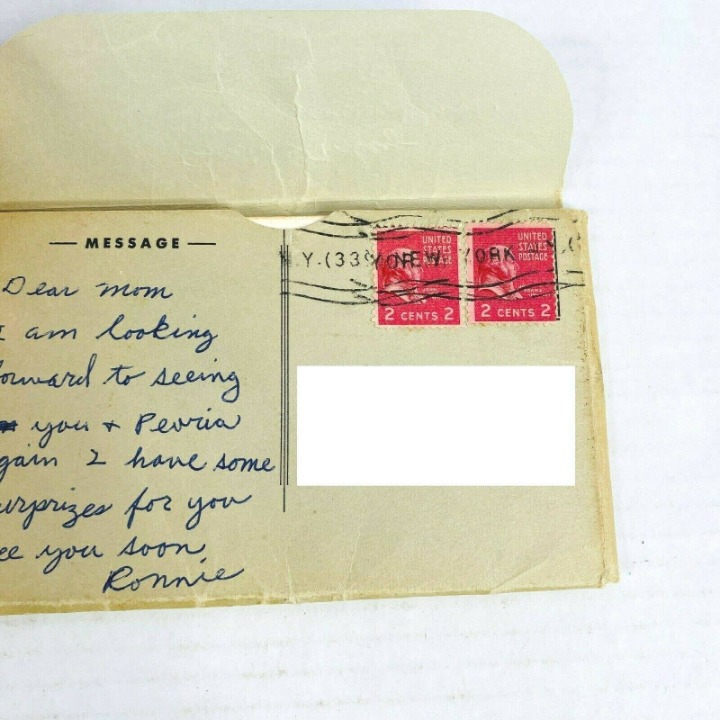 — MESSAGE —
Dear mom
I am looking
forward to seeing
you + Peoria
again I have some
surprizes for you
see you soon
Ronnie
N.Y. (33) NEW YORK
UNITED
STATES
POSTAGE
2 CENTS 2
UNITED
STATES
POSTAGE
2 CENTS 2